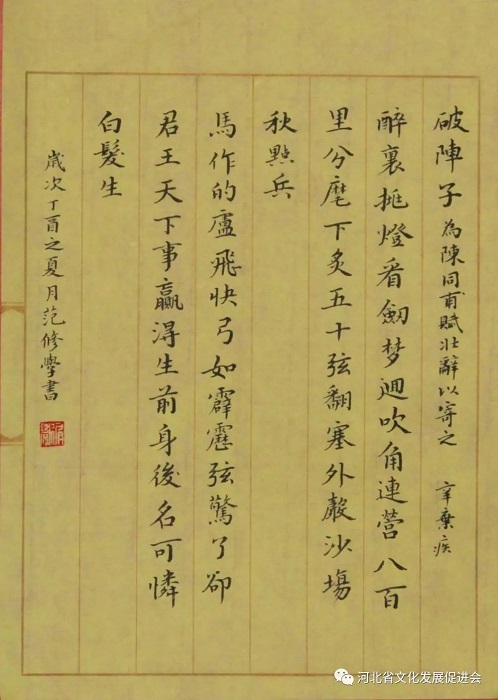 破陣子 為陳同甫賦壯辭以寄之 辛棄疾
醉裏挑燈看劔梦迴吹角連營八百
里分麾下炙五十弦翻塞外聲沙塲
秋點兵
馬作的盧飛快弓如霹靂弦驚了卻
君王天下事贏淂生前身後名可憐
白髮生
歲次丁酉之夏月范修學書
河北省文化发展促进会